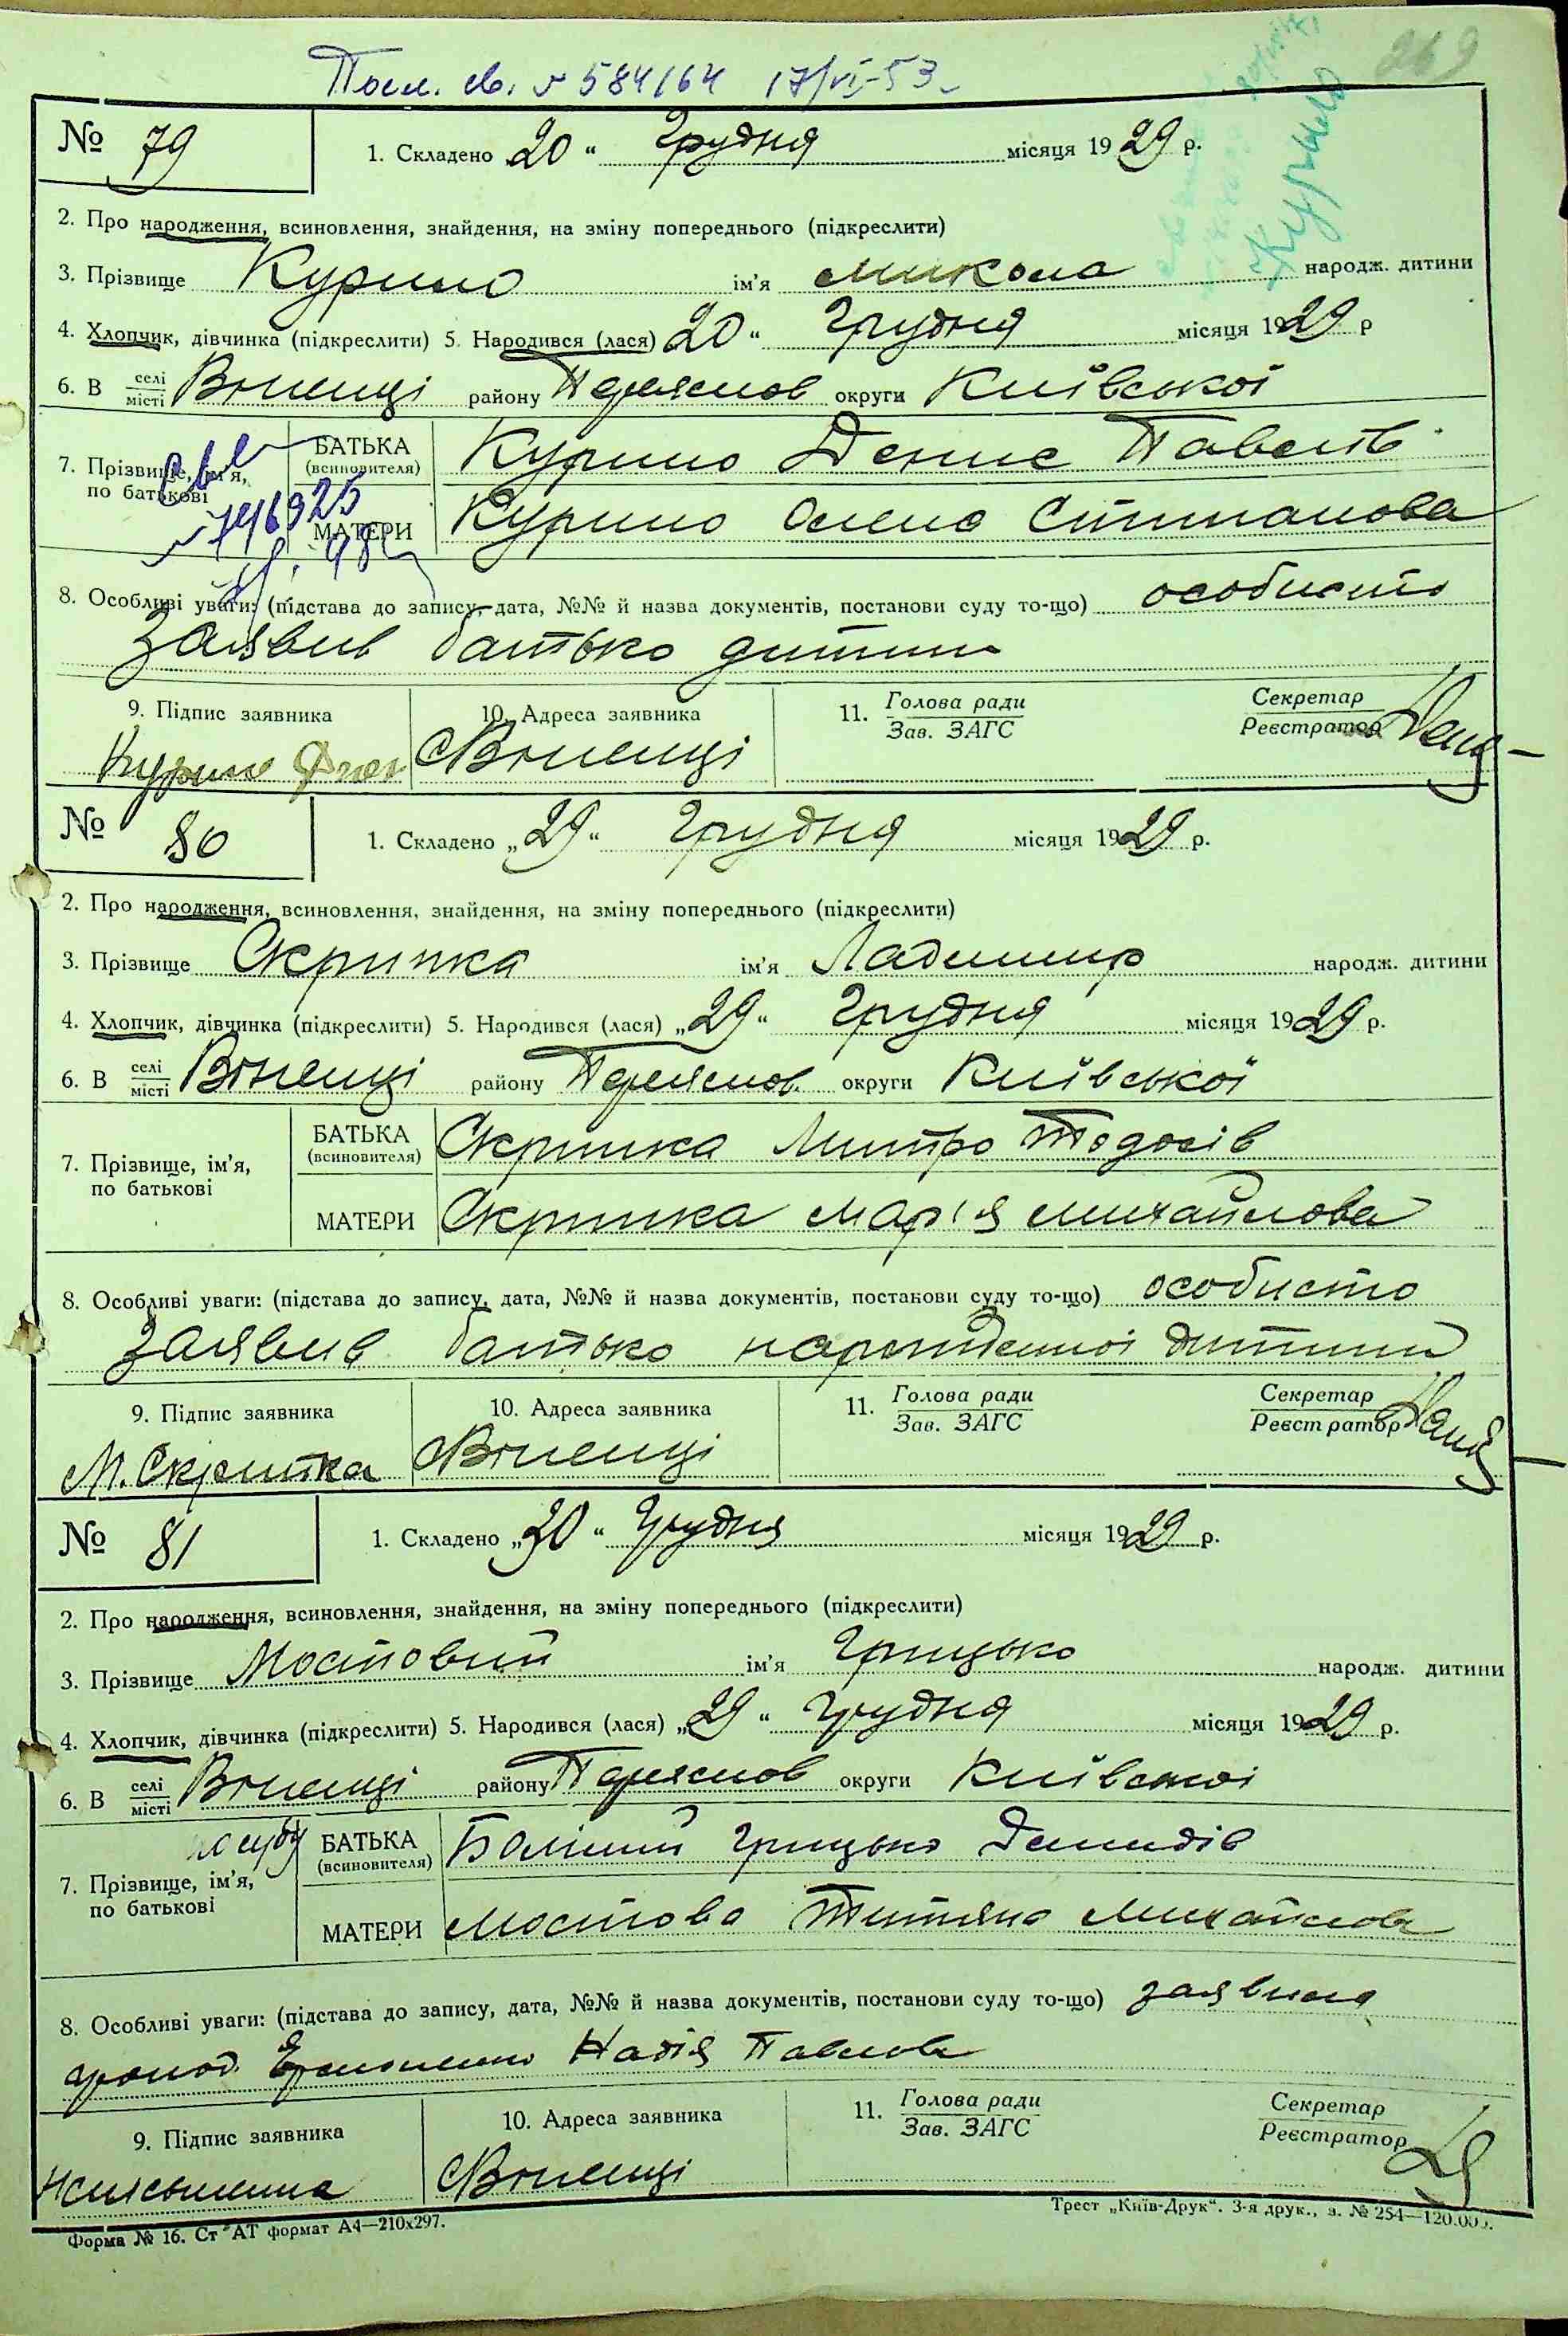 269
Посл. св. № 584164 17/VI-53
Курило
№ 79
1. Складено 20 " Грудня місяця 1929 р.
2. Про народження, всиновлення, знайдення, на зміну попереднього (підкреслити)
3. Прізвище Курило ім'я Микола народж. дитини
4. Хлопчик, дівчинка (підкреслити) 5. Народився (лася) 20 " Грудня місяця 1929 р
6. В селі місті Вюненці району Переяслов округи Київської
7. Прізвище, ім'я, по батькові
БАТЬКА (всиновителя) Курило Денис Павелів
МАТЕРИ Курило Олена Степанова
№ 746925
8. Особливі уваги: (підстава до запису, дата, №№ й назва документів, постанови суду то-що) особисто
заявив батько дитини
9. Підпис заявника
10. Адреса заявника
11. Голова ради Зав. ЗАГС
Секретар Реєстратор
Курило с Вюненці
№ 80
1. Складено „29" Грудня місяця 1929 р.
2. Про народження, всиновлення, знайдення, на зміну попереднього (підкреслити)
3. Прізвище Скрипка ім'я Ладимир народж. дитини
4. Хлопчик, дівчинка (підкреслити) 5. Народився (лася) „29" Грудня місяця 1929 р.
6. В селі місті Вюненці району Переяслов. округи Київської
7. Прізвище, ім'я, по батькові
БАТЬКА (всиновителя) Скрипка Митро Тодосів
МАТЕРИ Скрипка Марія Михайлова
8. Особливі уваги: (підстава до запису, дата, №№ й назва документів, постанови суду то-що) особисто
заявив батько народженної дитини
9. Підпис заявника
10. Адреса заявника
11. Голова ради Зав. ЗАГС
Секретар Реєстратор
М. Скрипка с Вюненці
№ 81
1. Складено „30" Грудня місяця 1929 р.
2. Про народження, всиновлення, знайдення, на зміну попереднього (підкреслити)
3. Прізвище Мостовий ім'я Грицько народж. дитини
4. Хлопчик, дівчинка (підкреслити) 5. Народився (лася) „29" Грудня місяця 1929 р.
6. В селі місті Вюненці району Переяслов округи Київської
7. Прізвище, ім'я, по батькові
БАТЬКА (всиновителя) Грицько Демидів
МАТЕРИ Мостова Титяна Михайлова
8. Особливі уваги: (підстава до запису, дата, №№ й назва документів, постанови суду то-що) заявила
громод. Надія Павлова
9. Підпис заявника
10. Адреса заявника
11. Голова ради Зав. ЗАГС
Секретар Реєстратор
Неписьменна с Вюненці
Форма № 16. Ст АТ формат А4—210х297.
Трест „Київ-Друк". 3-я друк., з. № 254—120.000.